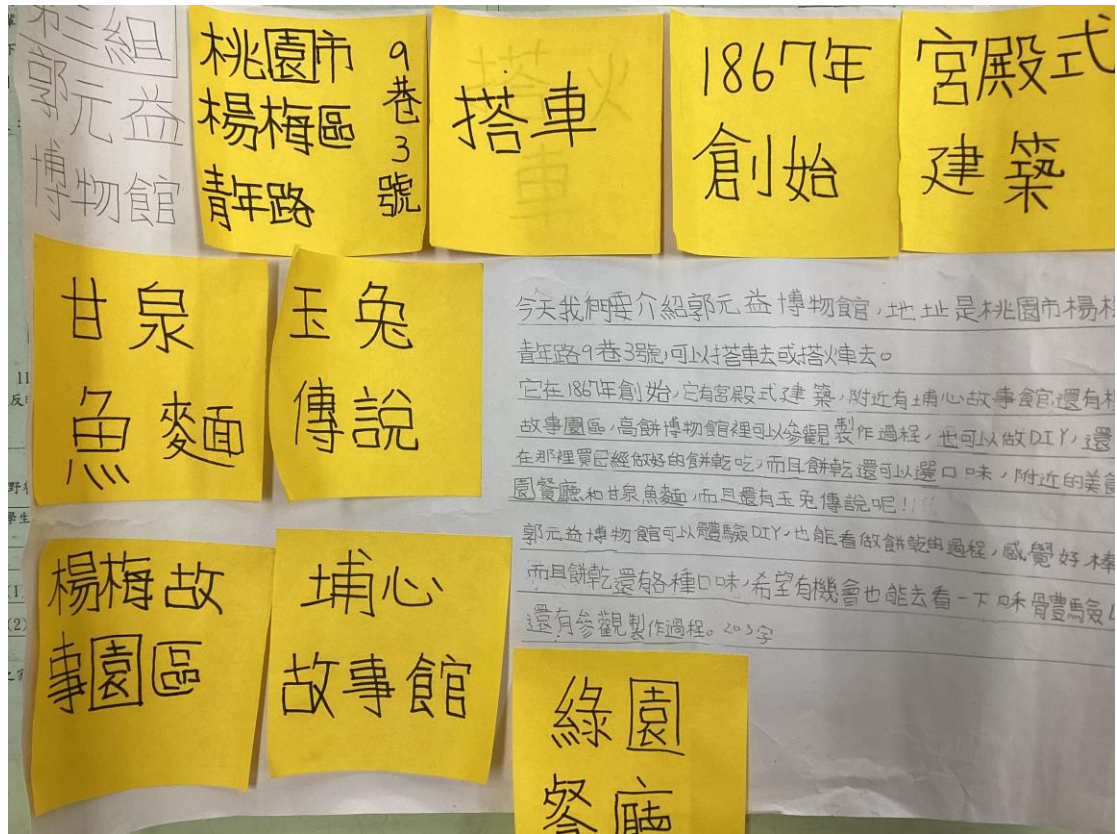 第三組
郭元益
博物館
桃園市
楊梅區
青年路
9巷3號
搭車
1867年
創始
宮殿式
建築
甘泉
魚麵
玉兔
傳說
今天我們要介紹郭元益博物館,地址是桃園市楊梅
青年路9巷3號,可以搭車去或搭火車去。
它在1867年創始,它有宮殿式建築,附近有埔心故事館還有
故事園區,高餅博物館裡可以參觀製作過程,也可以做DIY,還
在那裡買已經做好的餅乾吃,而且餅乾還可以選口味,附近的美食
園餐廳和甘泉魚麵,而且還有玉兔傳說呢!
郭元益博物館可以體驗DIY,也能看做餅乾的過程,感覺好棒
而且餅乾還有各種口味,希望有機會也能去看一下和體驗
還有參觀製作過程。203字
楊梅故
事園區
埔心
故事館
綠園
餐廳